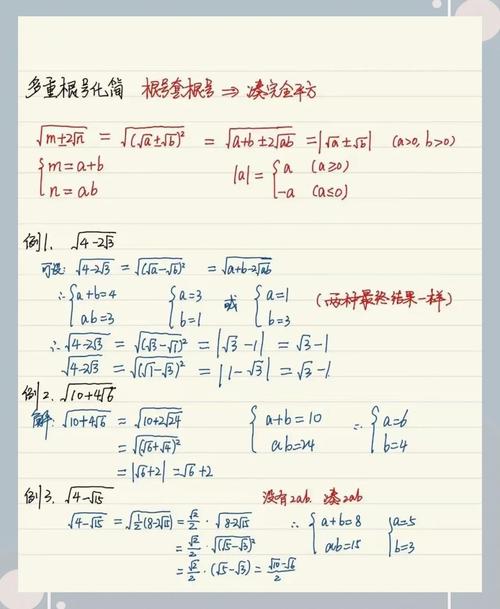 多重根号化简 根号套根号 ⇒ 凑完全平方
√(m±2√n) = √((√a±√b)²) = √(a+b±2√(ab)) = |√a±√b| (a>0, b>0)
{ m=a+b
n=ab
|a| = { a (a≥0)
-a (a≤0)
例1. √(4-2√3)
可设: √(4-2√3) = √((√a-√b)²) = √(a+b-2√(ab))
∴ { a+b=4
ab=3
{ a=3
b=1
或
{ a=1
b=3
(两种最终结果一样)
∴ √(4-2√3) = √((√3-√1)²) = |√3-1| = √3-1
√(4-2√3) = √((√1-√3)²) = |1-√3| = √3-1
例2. √(10+4√6)
解: √(10+4√6) = √(10+2√24)
= √((√6+√4)²)
= |√6+2| = √6+2
{ a+b=10
ab=24
∴ { a=6
b=4
例3. √(4-√15)
没有2ab, 凑2ab
√(4-√15) = √(½(8-2√15)) = √2/2 · √(8-2√15)
= √2/2 · √((√5-√3)²)
= √2/2 · (√5-√3) = (√10-√6)/2
∴ { a+b=8
ab=15
{ a=5
b=3